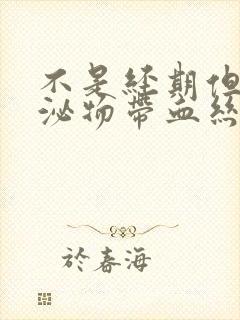 不是经期但
泌物带血丝
於春海